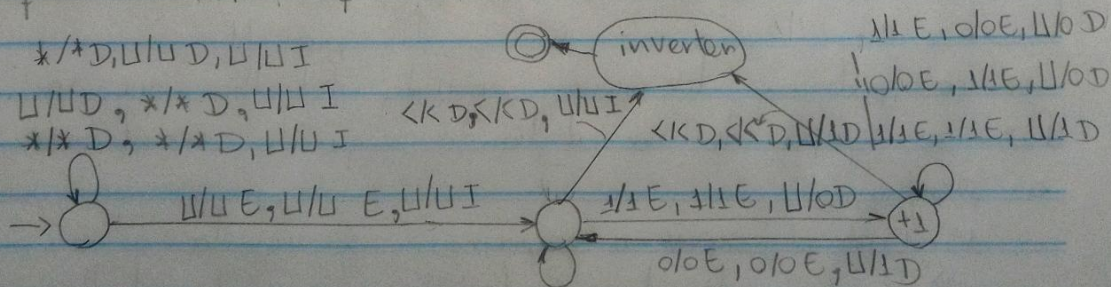 */*D,⊔/⊔D,⊔/⊔I
⊔/⊔D, */*D,⊔/⊔I
*/*D, */*D,⊔/⊔I
inverter
<<D,<<D,⊔/⊔I
1/1E,0/0E,⊔/0D
0/0E,1/1E,⊔/0D
1/1E,1/1E,⊔/1D
<<D,<<D,⊔/1D
⊔/⊔E,⊔/⊔E,⊔/⊔I
1/1E,1/1E,⊔/0D
+1
0/0E,0/0E,⊔/1D